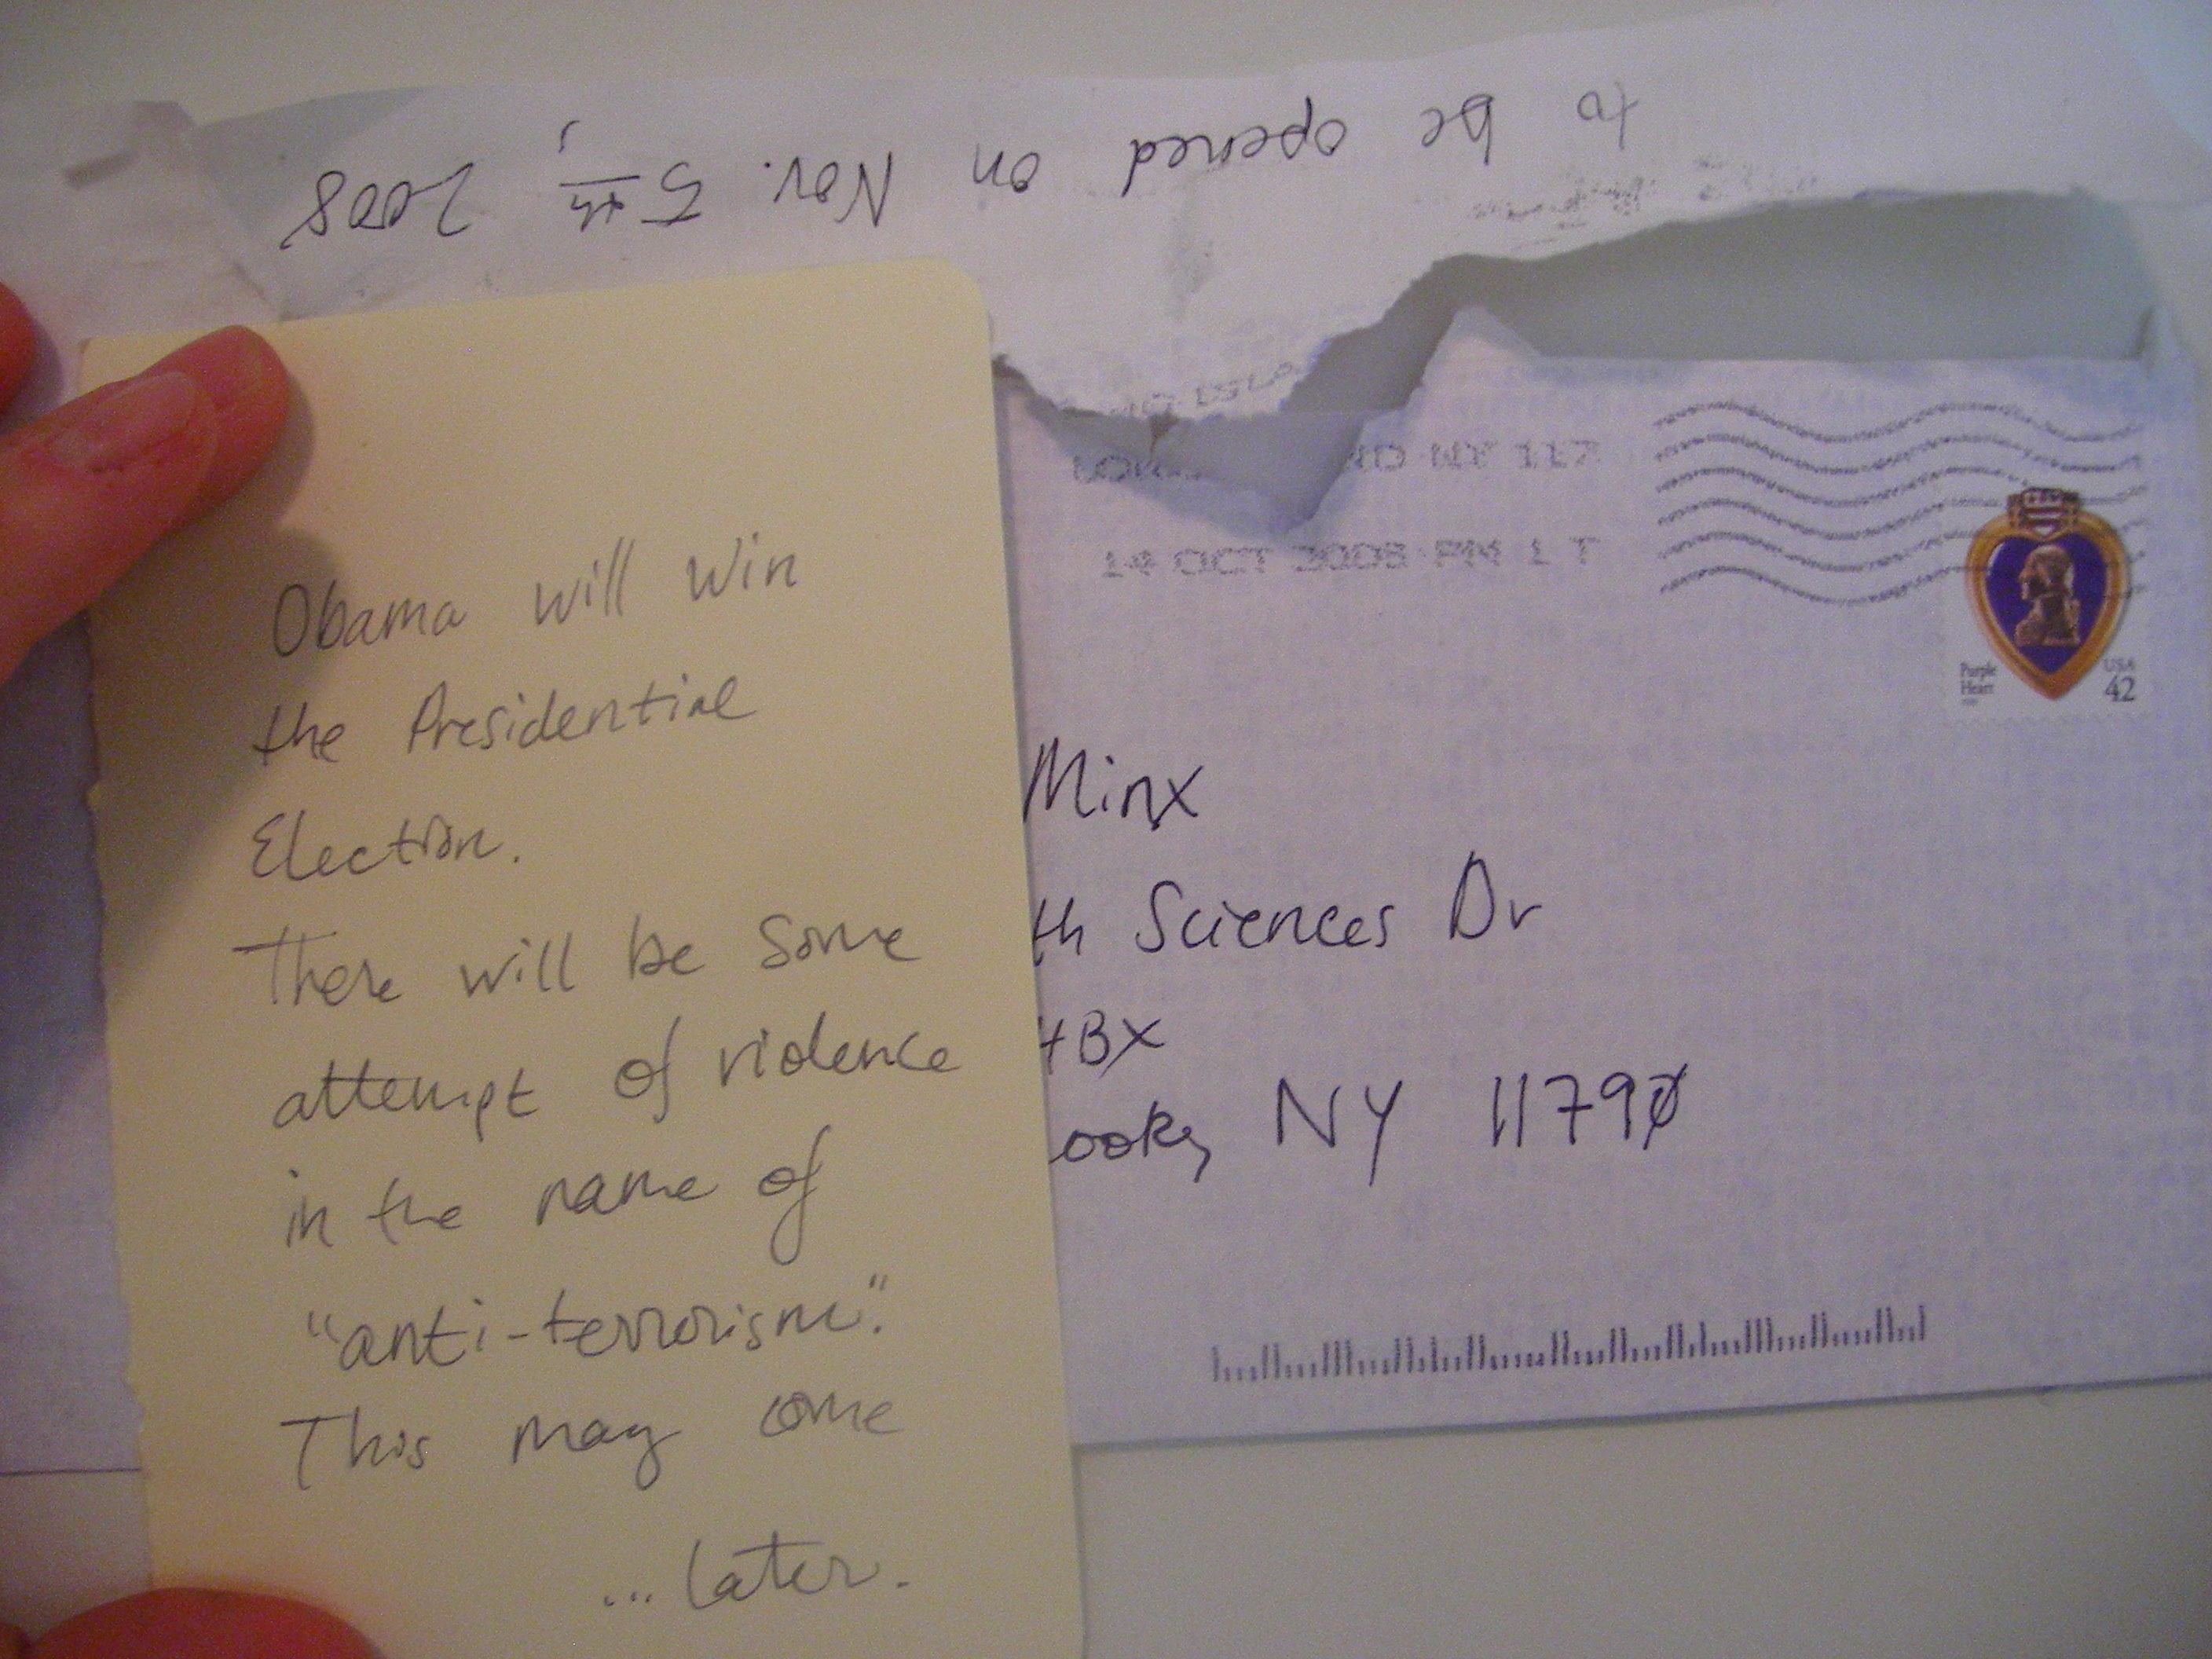 to be opened on Nov. 5th, 2008
Obama will win
the Presidential
Election.
There will be some
attempt of violence
in the name of
"anti-terrorism".
This may come
...later.
NY 117
14 OCT 2008 PM 1 T
Purple
Heart
USA
42
Minx
th Sciences Dr
HBX
ook, NY 11790